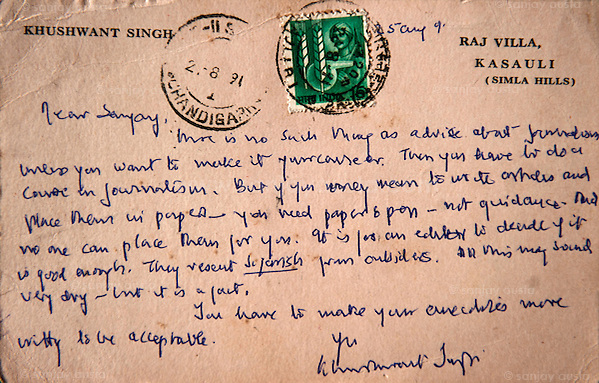 KHUSHWANT SINGH
5 Aug 9
RAJ VILLA,
KASAULI
(SIMLA HILLS)
CHANDIGARH
2-8 91
INDIA
Dear Sanjay,
There is no such thing as advise about journalism
unless you want to make it your career. Then you have to do a
course in journalism. But if you merely mean to write articles and
place them in papers – you need paper & pen – not guidance. And
no one can place them for you. It is for an editor to decide if it
is good enough. They resent sifarish from outsiders. All this may sound
very dry – but it is a fact.
You have to make your anecdotes more
witty to be acceptable.
Yrs
Khushwant Singh